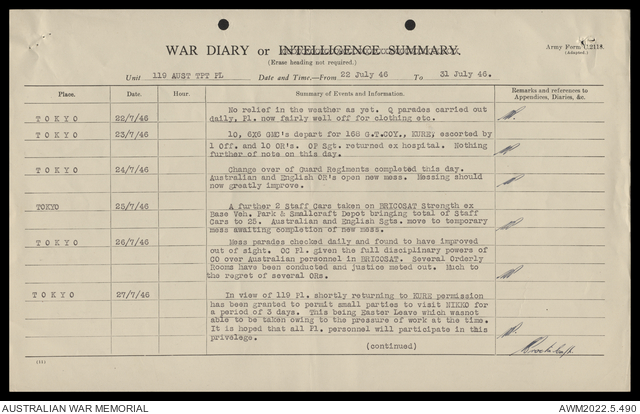 WAR DIARY or INTELLIGENCE SUMMARY.
(Erase heading not required.)
Army Form C.2118.
(Adapted.)
Unit 119 AUST TPT PL Date and Time.—From 22 July 46 To 31 July 46.
Place. Date. Hour. Summary of Events and Information. Remarks and references to Appendices, Diaries, &c.
No relief in the weather as yet. Q parades carried out
TOKYO 22/7/46 daily, Pl. now fairly well off for clothing etc.
TOKYO 23/7/46 10, 6X6 GMC's depart for 168 G.T.COY., KURE, escorted by
1 Off. and 10 OR's. OP Sgt. returned ex hospital. Nothing
further of note on this day.
TOKYO 24/7/46 Change over of Guard Regiments completed this day.
Australian and English OR's open new mess. Messing should
now greatly improve.
TOKYO 25/7/46 A further 2 Staff Cars taken on BRICOSAT Strength ex
Base Veh. Park & Smallcraft Depot bringing total of Staff
Cars to 25. Australian and English Sgts. move to temporary
mess awaiting completion of new mess.
TOKYO 26/7/46 Mess parades checked daily and found to have improved
out of sight. OC Pl. given the full disciplinary powers of
CO over Australian personnel in BRICOSAT. Several Orderly
Rooms have been conducted and justice meted out. Much to
the regret of several ORs.
TOKYO 27/7/46 In view of 119 Pl. shortly returning to KURE permission
has been granted to permit small parties to visit NIKKO for
a period of 3 days. This being Easter Leave which wasnot
able to be taken owing to the pressure of work at the time.
It is hoped that all Pl. personnel will participate in this
privelege.
(continued)
(11)
AUSTRALIAN WAR MEMORIAL AWM2022.5.490